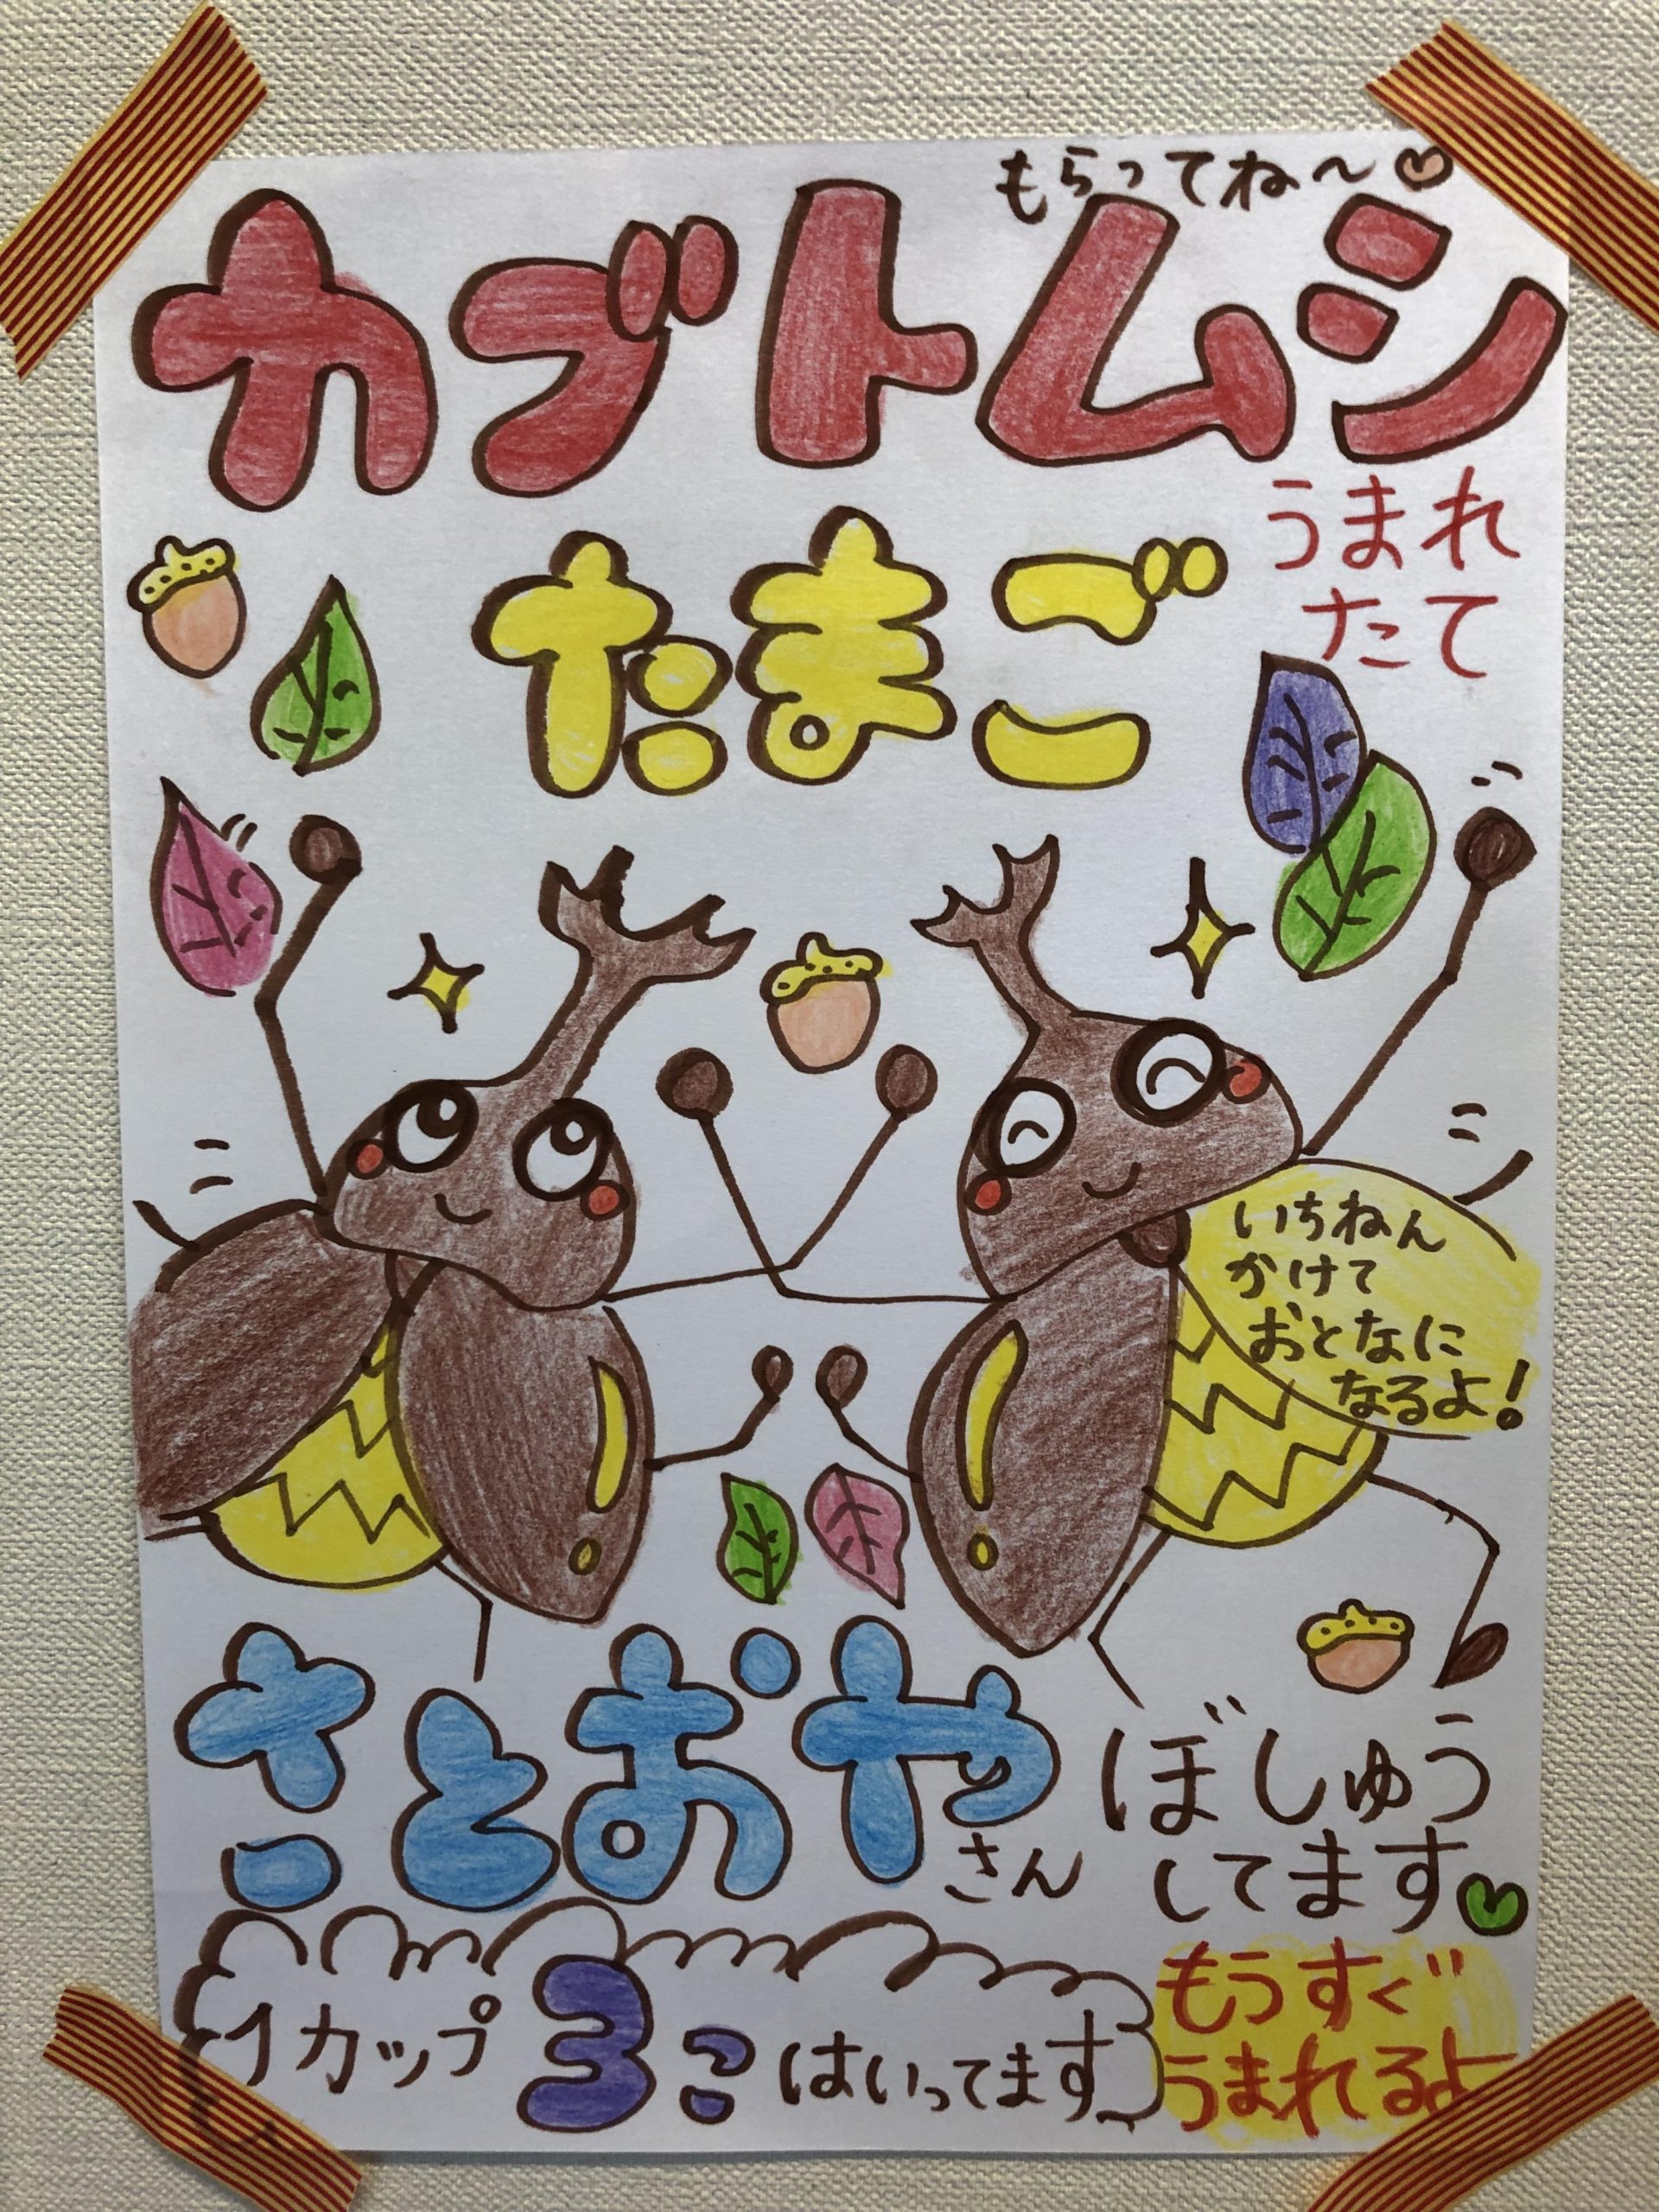 もらってね〜♡
カブトムシ
たまご
うまれ
たて
いちねん
かけて
おとなに
なるよ!
さとおや
さん
ぼしゅう
してます
1カップ 3こ はいってます
もうすぐ
うまれるよ